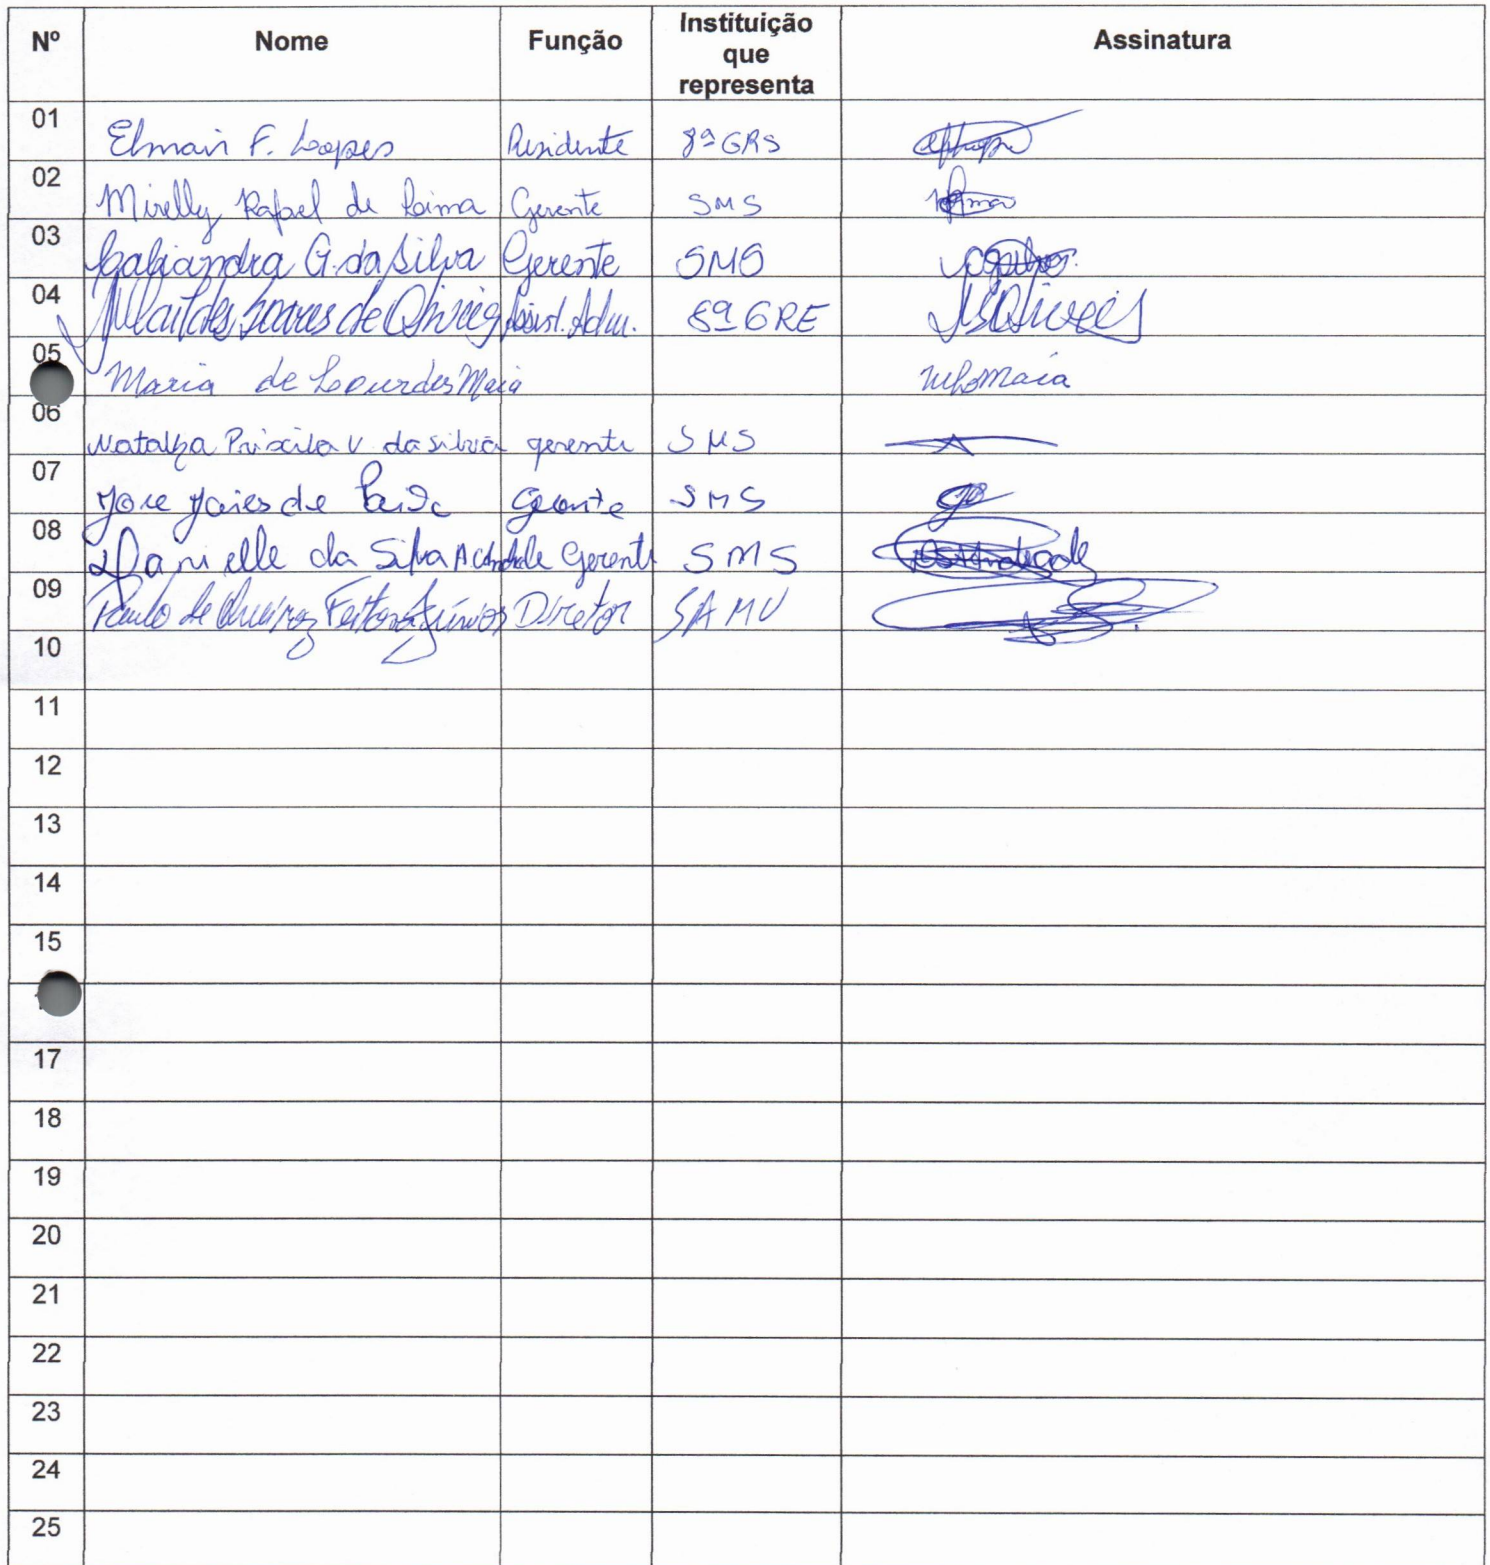 Nº Nome Função Instituição que representa Assinatura
01 Elmair F. Lopes Residente 8ª GRS
02 Mirelly Rafael de Lima Gerente SMS
03 G. da Silva Gerente SMS
04 Soares de Assist. Adm. 8ª GRE
05 Maria de Lourdes Maia
06 Priscila V. da Silva gerente SMS
07 Jose de Gerente SMS
08 Danielle da Silva Andrade Gerente SMS
09 Paulo de Queiroz Feitosa Júnior Diretor SAMU
10
11
12
13
14
15
17
18
19
20
21
22
23
24
25